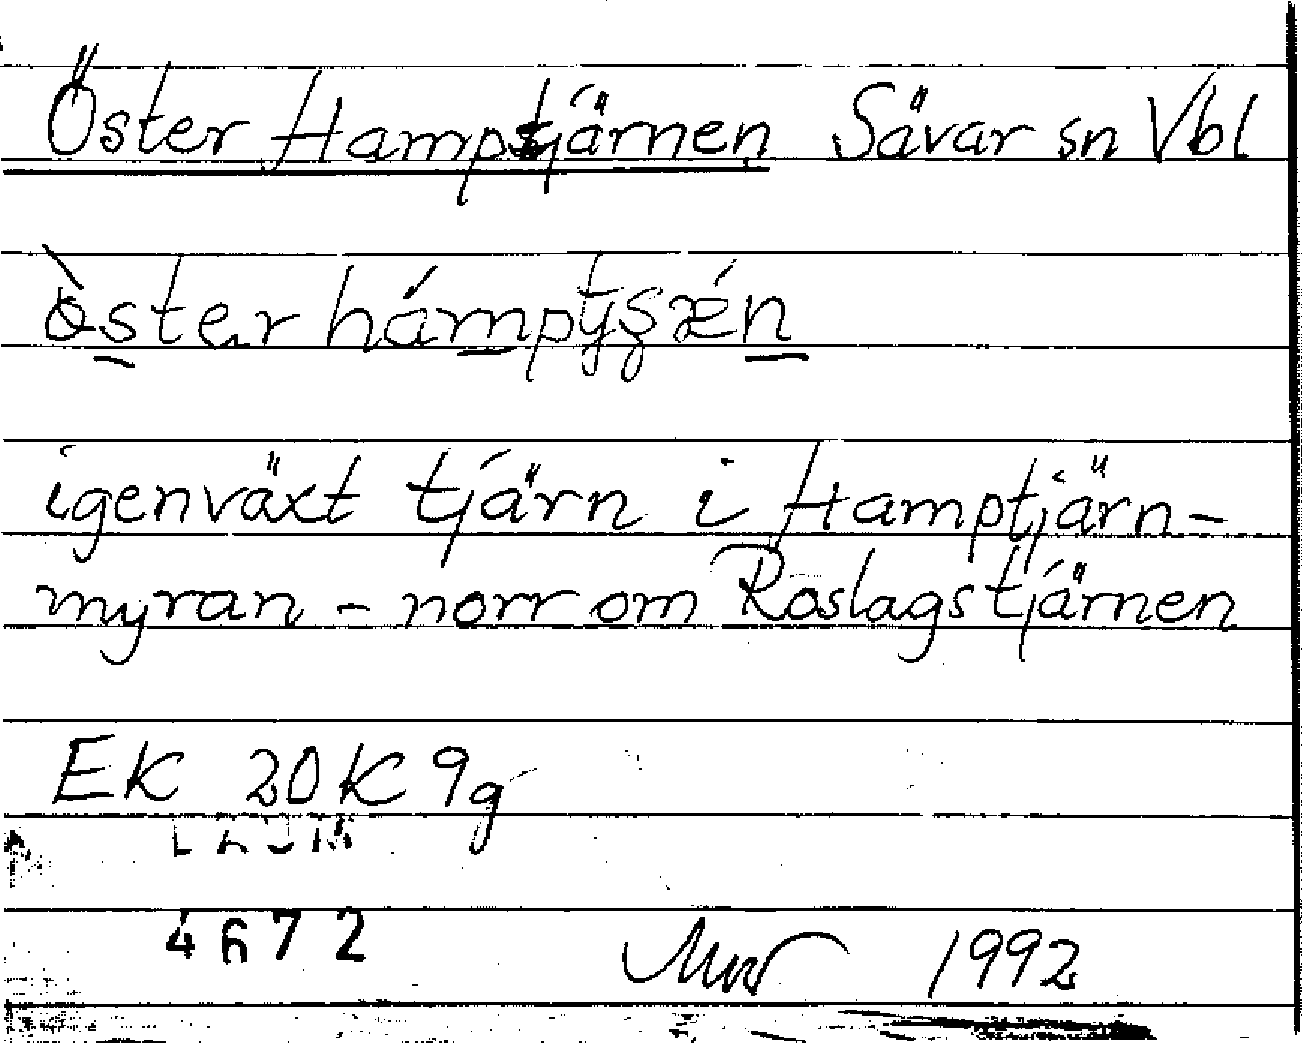 Öster Hamptjärnen Sävar sn Vbl
igenväxt tjärn i Hamptjärn-
myran - norr om Roslagstjärnen
EK 20K 9g
4672
1992